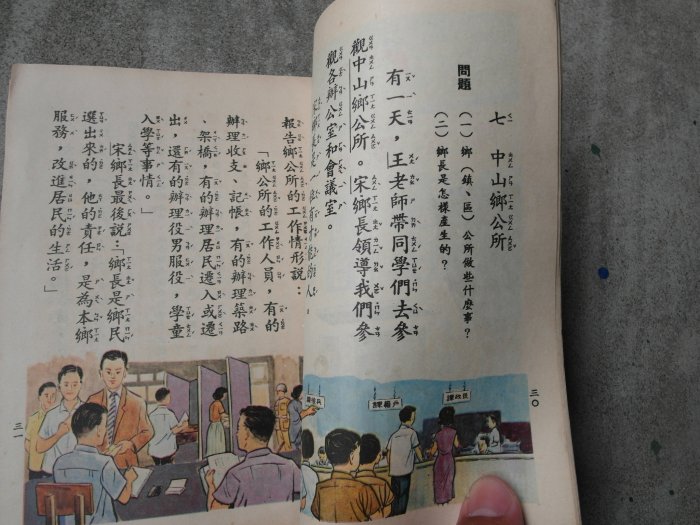 七 中山鄉公所
問題
(一) 鄉(鎮、區)公所做些什麼事？
(二) 鄉長是怎樣產生的？
有一天，王老師帶同學們去參
觀中山鄉公所。宋鄉長領導我們參
觀各辦公室和會議室。
三〇
民政課
戶籍課
報告鄉公所的工作情形說：
「鄉公所的工作人員，有的
辦理收支、記帳，有的辦理築路
、架橋，有的辦理居民遷入或遷
出，還有的辦理役男服役，學童
入學等事情。」
宋鄉長最後說：「鄉長是鄉民
選出來的，他的責任，是為本鄉
服務，改進居民的生活。」
三一